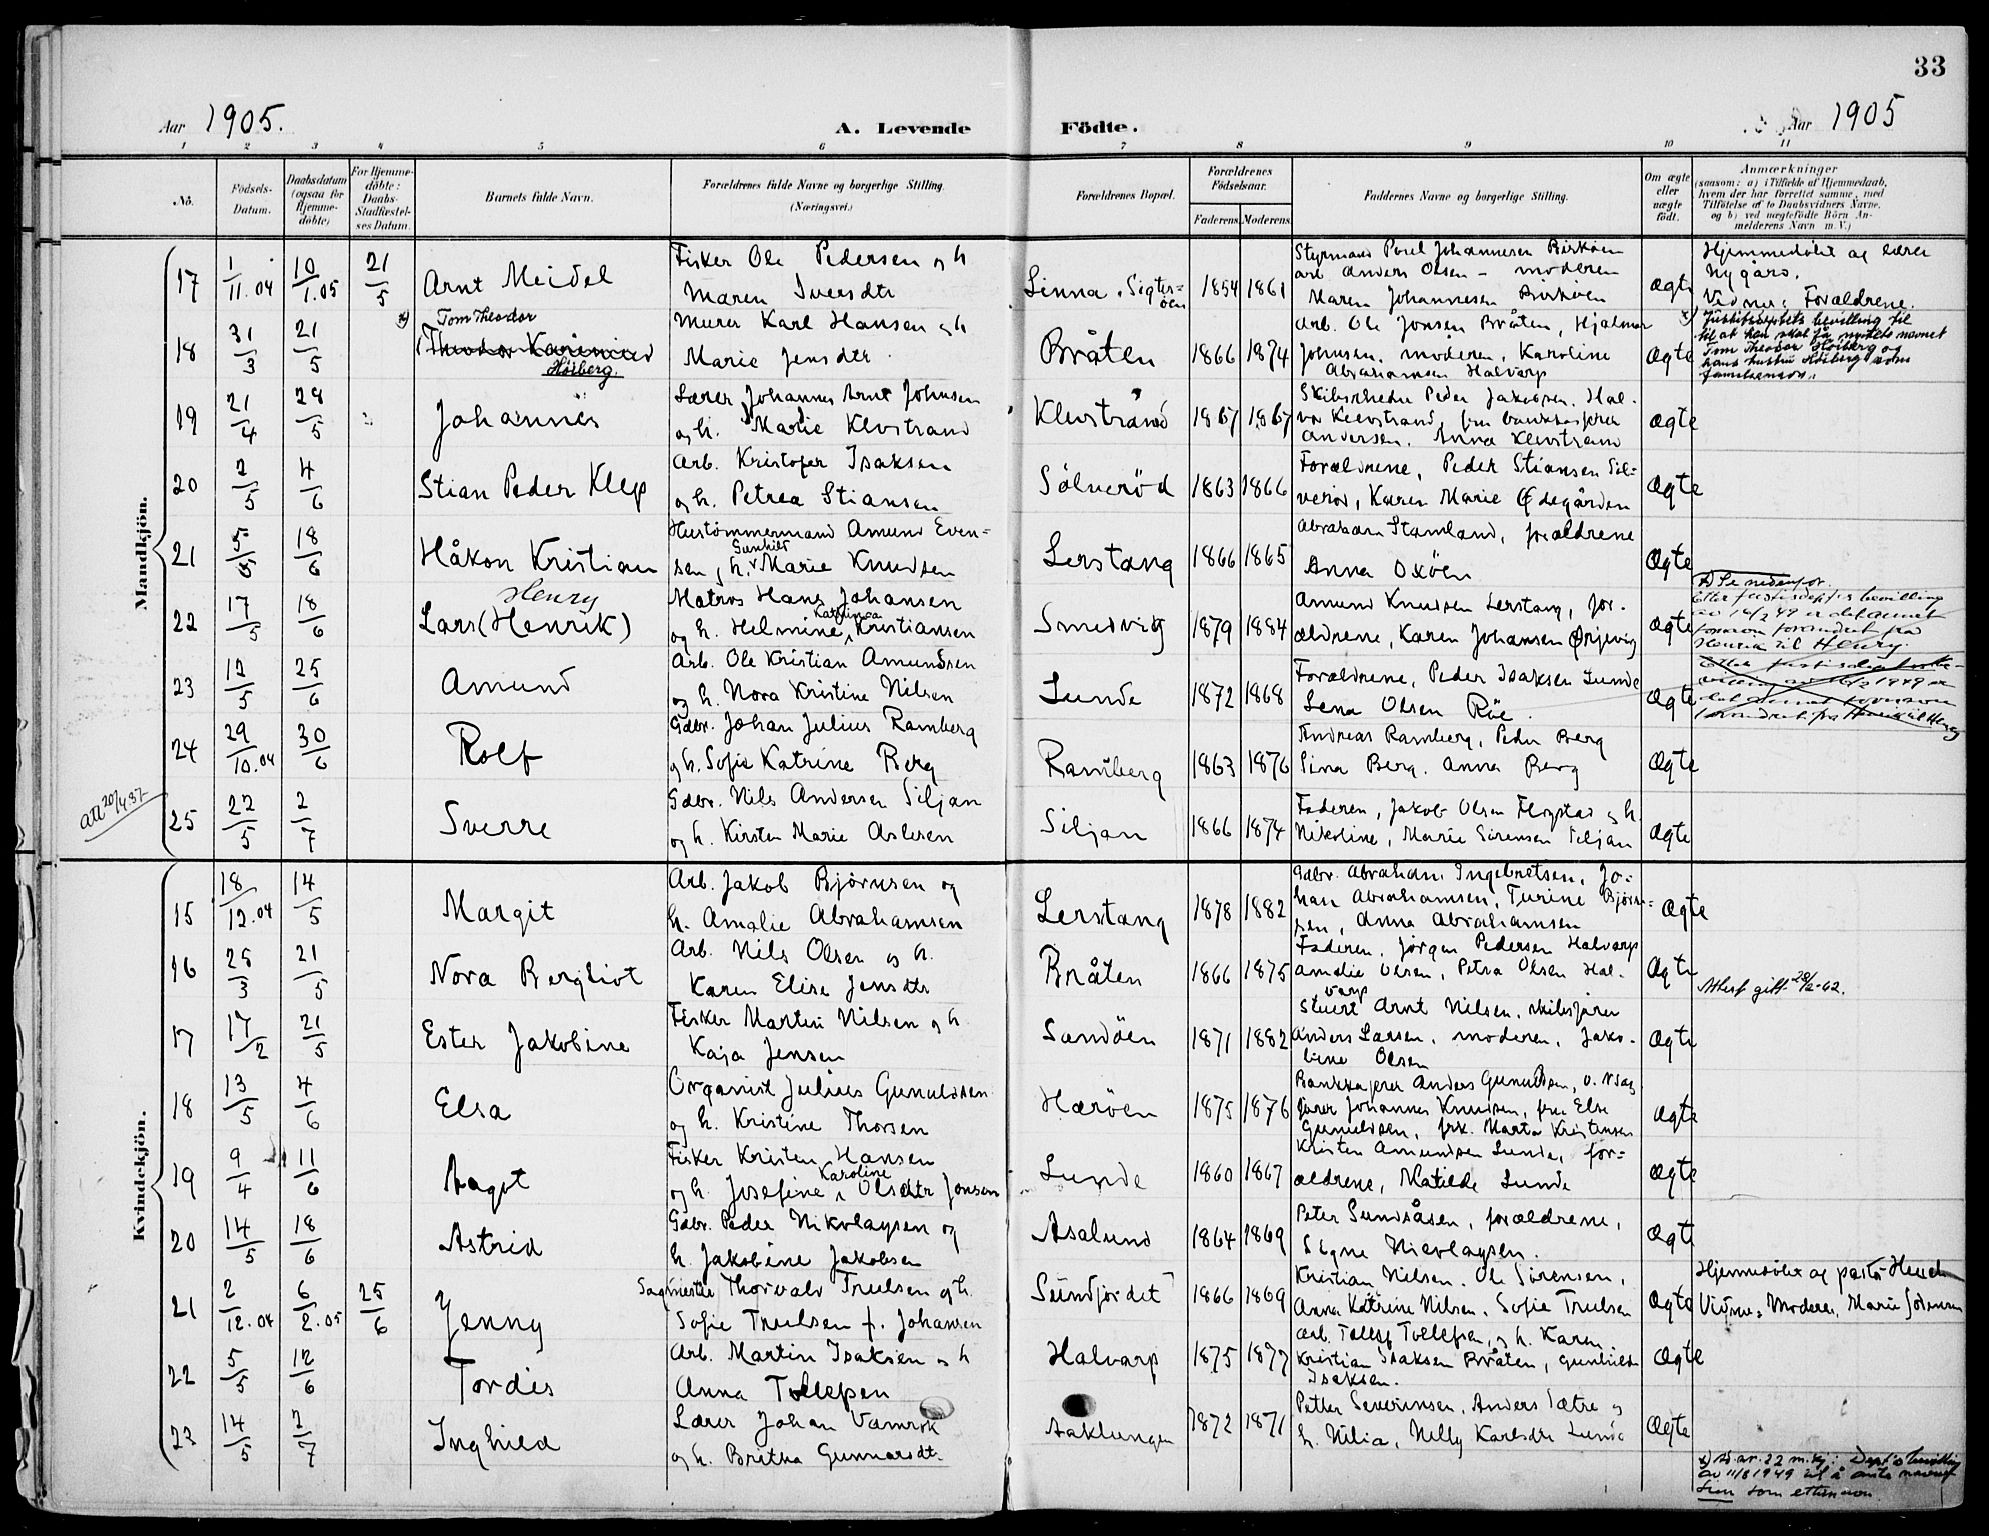 33
Aar 1905.
A. Levende Födte.
Aar 1905
1 2 3 4 5 6 7 8 9 10 11
No.
Födsels-Datum.
Daabsdatum (ogsaa for Hjemmedöbte)
For Hjemmedöbte: Daabs-Stadfæstelses Datum.
Barnets fulde Navn.
Forældrenes fulde Navne og borgerlige Stilling. (Næringsvei.)
Forældrenes Bopæl.
Forældrenes Födselsaar.
Faderens. Moderens.
Faddernes Navne og borgerlige Stilling.
Om ægte eller uægte födt.
Anmærkninger
(saasom: a) i Tilfælde af Hjemmedaab, hvem der har forrettet samme, med Tilföielse af to Daabsvidners Navne, og b) ved uægtefödte Börn Anmelderens Navn m. V.)
Mandkjön.
17 1/11.04 10/1.05 21/5 Arnt Meidel
Fisker Ole Pedersen og h
Maren Iversdtr
Linna, Sigtesöen 1854 1861
Styrmand Poul Johannesen Birköen
arb. Anders Olsen - moderen
Maren Johannesen Birköen
Ægte
Hjemmedöbt ag lærer
Nygård.
Vidner: Forældrene.
18 31/3 21/5 x) Tom Theodor
Theodor
Höiberg.
Murer Karl Hansen og h
Marie Jensdtr.
Bråten 1866 1874
Arb. Ole Jonsen Bråten, Hjalmar
Johnsen, moderen, Karoline
Abrahamsen Halvarp
Ægte
x) Justitsdeptets bevilling til
til at han skal få
Tom Theodor Höiberg og
hans hustru Höiberg som
familienavn.
19 21/4 28/5 Johannes
Lærer Johannes Arnt Johnsen
og h. Marie Klevstrand
Klevstrand 1867 1867
Skibsrheder Peder Jakobsen, Hal-
vor Klevstrand, fru
Andersen, Anna Klevstrand
Ægte
20 2/5 4/6 Stian Peder Klep
Arb. Kristofer Isaksen
og h. Petrea Stiansen
Sölveröd 1863 1866
Forældrene, Peder Stiansen Söl-
veröd, Karen Marie Ödegården
Ægte
21 5/5 18/6 Håkon Kristian
Hustömmermand Amund Even-
sen, h. Gunhild Marie Knudsen
Lerstang 1866 1865
Abraham Stamland, forældrene
Anna Oxöen
Ægte
22 17/5 18/6 Lars (Henrik) Henry
Matros Hans Johansen
og h. Helmine Katrinea Kristiansen
Smedvig 1879 1884
Amund Knudsen Lerstang, for-
ældrene, Karen Johansen Örjevig
Ægte
x) Se nedenfor.
Efter justisdept's bevilling
av 16/2 49 er det annet
fornavn forandret fra
Henrik til Henry.
23 12/5 25/6 Amund
Arb. Ole Kristian Amundsen
og h. Nora Kristine Nilsen
Lunde 1872 1868
Forældrene, Peder Isaksen Lunde
Lena Olsen Röe.
Ægte
24 29/10.04 30/6 Rolf
Gdbr. Johan Julius Ramberg
og h. Sofie Katrine Berg
Ramberg 1863 1876
Andreas Ramberg, Peder Berg
Lina Berg. Anna Berg
Ægte
att 20/4 37
25 22/5 2/7 Sverre
Gdbr. Nils Andersen Siljan
og h. Kirsten Marie Aslesen
Siljan 1866 1874
Faderen, Jakob Olsen Flogstad og h.
Nikoline, Marie Sörensen Siljan
Ægte
Kvindekjön.
15 18/12.04 14/5 Margit
Arb. Jakob Björnsen og
h. Amalie Abrahamsen
Lerstang 1878 1882
Gdbr. Abraham Ingebretsen, Jo-
han Abrahamsen, Turine Björn-
sen, Anna Abrahamsen
Ægte
16 25/3 21/5 Nora Bergliot
Arb. Nils Olsen og h.
Karen Elise Jensdtr
Bråten 1866 1875
Faderen, Jörgen Pedersen Halvarp
Amalie Olsen, Petra Olsen Hal-
varp
Ægte
Attest gift 28/2-62.
17 17/2 21/5 Ester Jakobine
Fisker Martin Nilsen og h.
Kaja Jensen
Sandöen 1871 1882
Stuert Arnt Nilsen, skibsförer
Anders Larsen, moderen, Jako-
bine Olsen
Ægte
18 13/5 4/6 Elsa
Organist Julius Gunuldsen
og h. Kristine Thorsen
Haröen 1875 1876
Bankkaserer Anders Gunuldsen,
förer Johannes Knudsen, fru Else
Gunuldsen, frk. Marta Kristensen
Ægte
19 9/4 11/6 Aagot
Fisker Kristen Hansen
og h. Josefine Karoline Olsdtr Jonsen
Lunde 1860 1867
Kristen Amundsen Lunde, for-
ældrene, Matilde Lunde
Ægte
20 14/5 18/6 Astrid
Gdbr. Peder Nikolaysen og
h. Jakobine Jakobsen
Asalund 1864 1869
Peter Sundsåsen, forældrene,
Signe Nicolaysen.
Ægte
21 2/12.04 6/2.05 25/6 Jenny
Sagmester Thorvald Truelsen og h.
Sofie Truelsen f. Johansen
Sundjordet 1866 1869
Kristian Nilsen. Ole Sörensen,
Anna Katrine Nilsen. Sofie Truelsen
Ægte
Hjemmedöbt ag pastor Heuch
Vidner: Moderen, Marie Johansen
22 5/5 12/6 Tordis
Arb. Martin Isaksen og h
Anna Tollefsen
Halvarp 1875 1877
Arb. Tollef Tollefsen, og h. Karen
Kristian Isaksen Bråten, Gunhild
Isaksen.
Ægte
23 14/5 2/7 Inghild
Lærer Johan Vamråk
og h. Britha Gunnarsdtr.
Aaklungen 1872 1871
Petter Severinsen, Anders Sætre og
h. Nilia, Nelly Karlsdtr Lunde
Ægte
x) Ad nr. 22 m.kj: Dept's bevilling
av 11/8 1949 til å anta navnet
som etternavn.